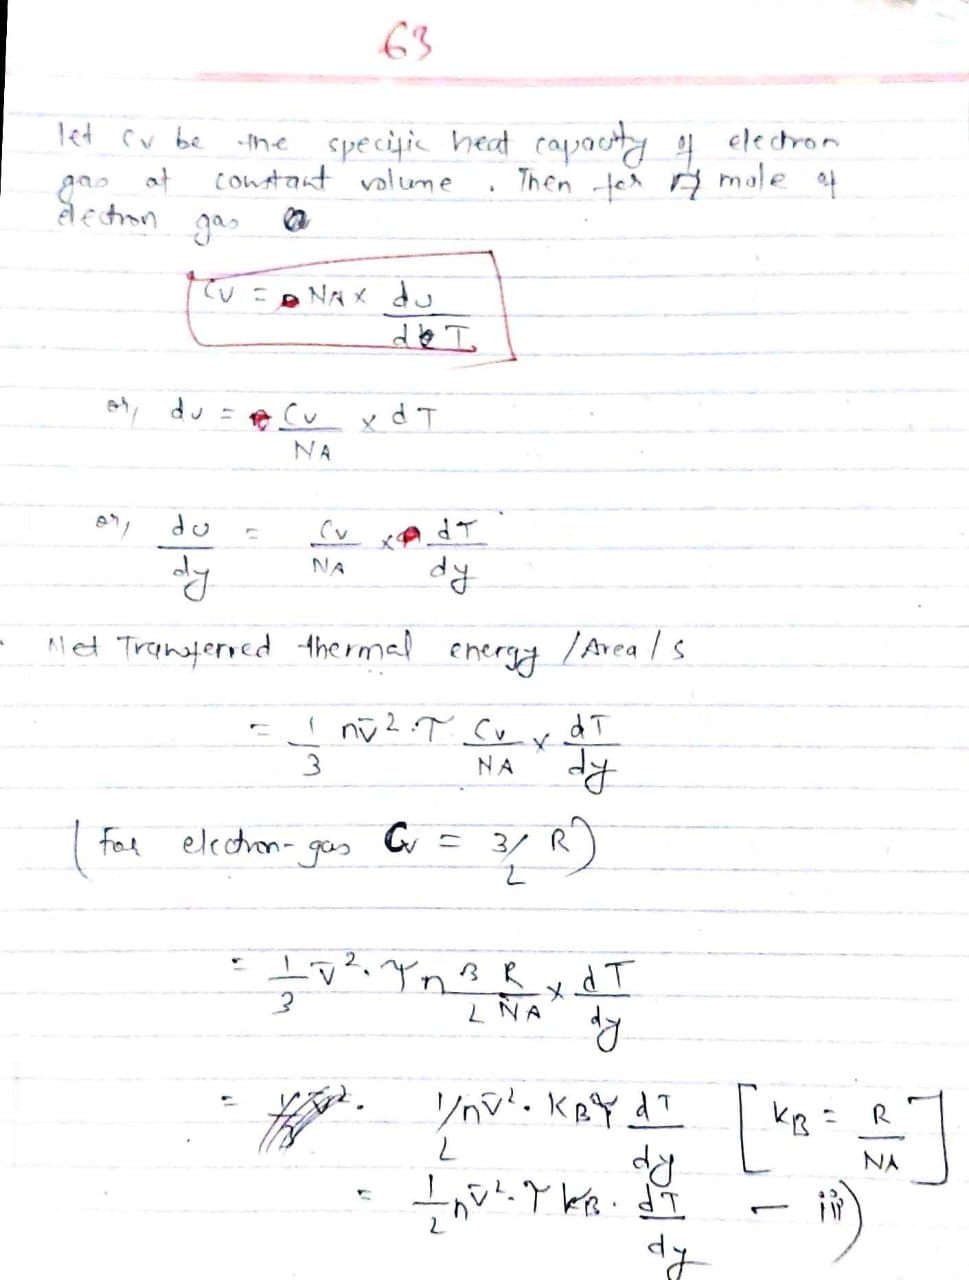 63
let Cv be the specific heat capacity of electron
gas at constant volume. Then for mole of
electron gas
Cv = NA × du/dT
or, du = Cv/NA × dT
or, du/dy = Cv/NA × dT/dy
Net Transferred thermal energy /Area/s
= 1/3 nv̄².τ Cv/NA × dT/dy
(For electron-gas Cv = 3/2 R)
= 1/3 v̄².τ n 3/2 R/NA × dT/dy
= 1/2 nv̄². KB τ dT/dy [KB = R/NA]
= 1/2 nv̄².τ KB. dT/dy – iii)